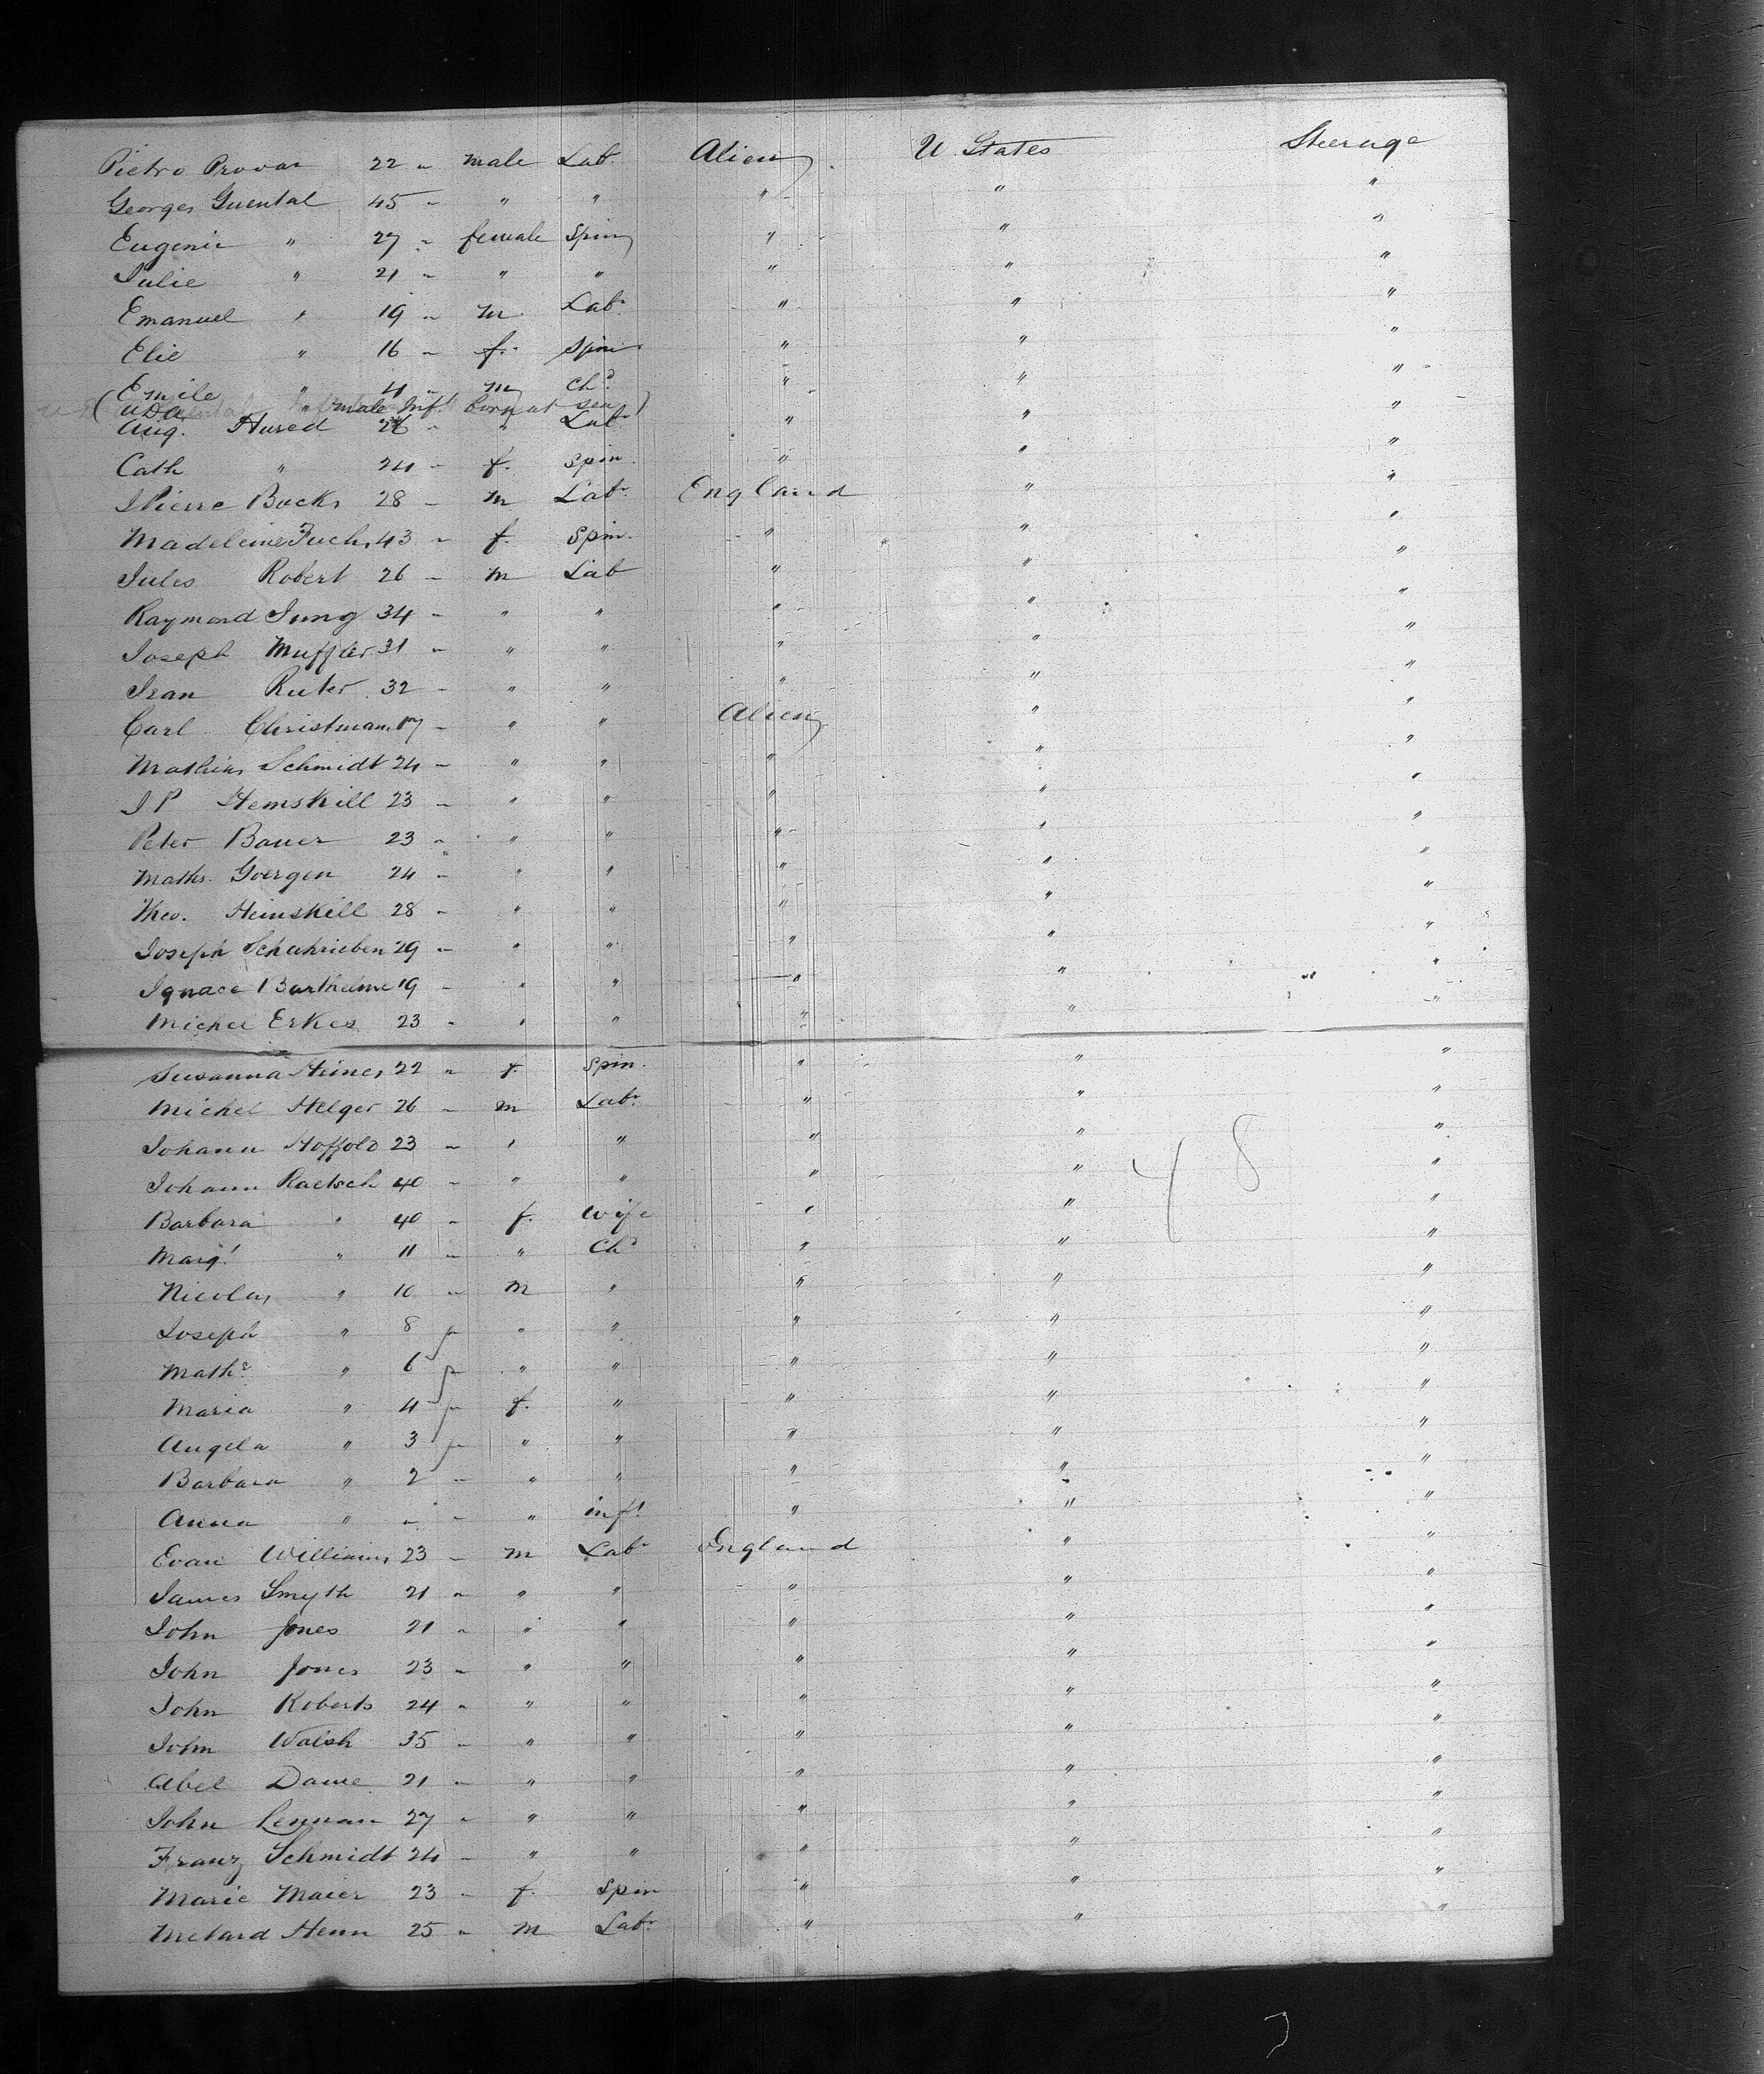 Pietro Provar 22 " male Lab. Alien U. States Steerage
Georges Guental 45 " " " " " "
Eugenie " 27 " female Spin " " "
Julie " 21 " " " " " "
Emanuel " 19 " m. Labr " " "
Elie " 16 " f. Spin " " "
Emile " 4 " m Chd " " "
(Uda " female Inft born at sea) "
Aug. Hured 26 " " Labr " "
Cath " 24 " f. Spin " " "
J Pierre Bocks 28 " m Labr England " "
Madeleine Fuchs 43 " f. Spin. " " "
Jules Robert 26 " m Lab " " "
Raymond Jung 34 " " " " " "
Joseph Muffler 31 " " " " " "
Jean Ruter 32 " " " " " "
Carl Christman 17 " " " Alien " "
Mathias Schmidt 24 " " " " " "
J P Hemskill 23 " " " " " "
Peter Bauer 23 " " " " " "
Maths. Goergen 24 " " " " " "
Theo. Heinskill 28 " " " " " "
Joseph Schuhrieben 29 " " " " " "
Ignace Barthelme 19 " " " " " "
Michel Erkes 23 " " " " " "
Suwanna Heines 22 " f. Spin. " " "
Michel Helger 26 " m Labr " " "
Johann Hoffold 23 " " " " " "
Johann Raetsch 40 " " " " " "
48
Barbara " 40 " f. Wife " " "
Margt " 11 " " Chd " " "
Nicolas " 10 " m " " " "
Joseph " 8 " " " " "
Maths " 6 " " " " "
Maria " 4 f. " " " "
Angela " 3 " " " " "
Barbara " 2 " " " " " "
Anna " " " " inft " " "
Evan Williams 23 " m Labr England " "
James Smyth 21 " " " " " "
John Jones 21 " " " " " "
John Jones 23 " " " " " "
John Roberts 24 " " " " " "
John Walsh 35 " " " " " "
Abel Dawe 21 " " " " " "
John Lennan 27 " " " " " "
Franz Schmidt 24 " " " " " "
Marie Maier 23 " f. Spin " " "
Metard Henn 25 " m Labr " " "